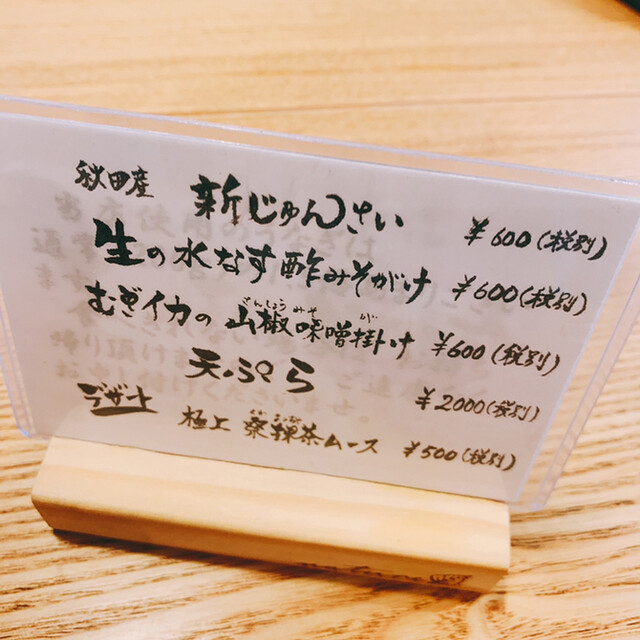 秋田産 新じゅんさい ¥600(税別)
生の水なす酢みそがけ ¥600(税別)
むぎイカの山椒味噌掛け ¥600(税別)
天ぷら ¥2000(税別)
デザート
極上 茶ムース ¥500(税別)